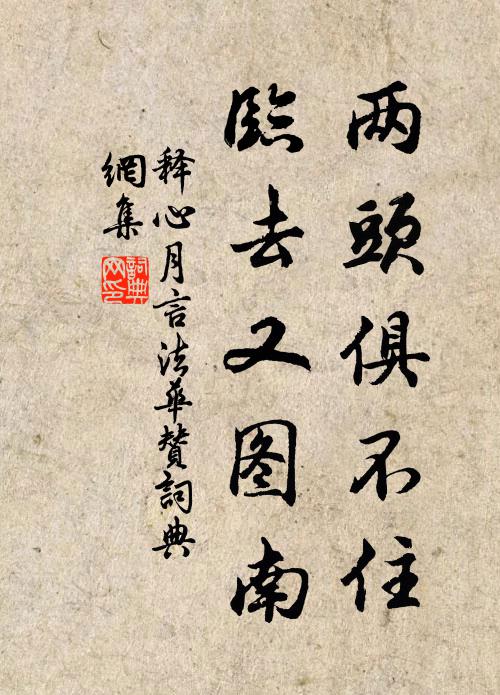 两頭俱不住
臨去又图南
释心月言法華贊詞典
網集
詞典
网印